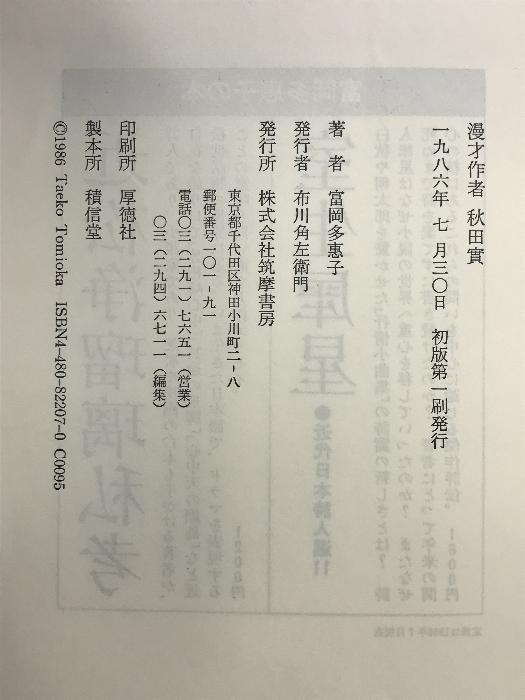 漫才作者 秋田實
一九八六年 七 月三〇日 初版第一刷発行
著 者 富岡多惠子
発行者 布川角左衛門
発行所 株式会社筑摩書房
東京都千代田区神田小川町二−八
郵便番号一〇一−九一
電話〇三(二九一)七六五一(営業)
〇三(二九四)六七一一(編集)
印刷所 厚徳社
製本所 積信堂
©1986 Taeko Tomioka ISBN4-480-82207-0 C0095